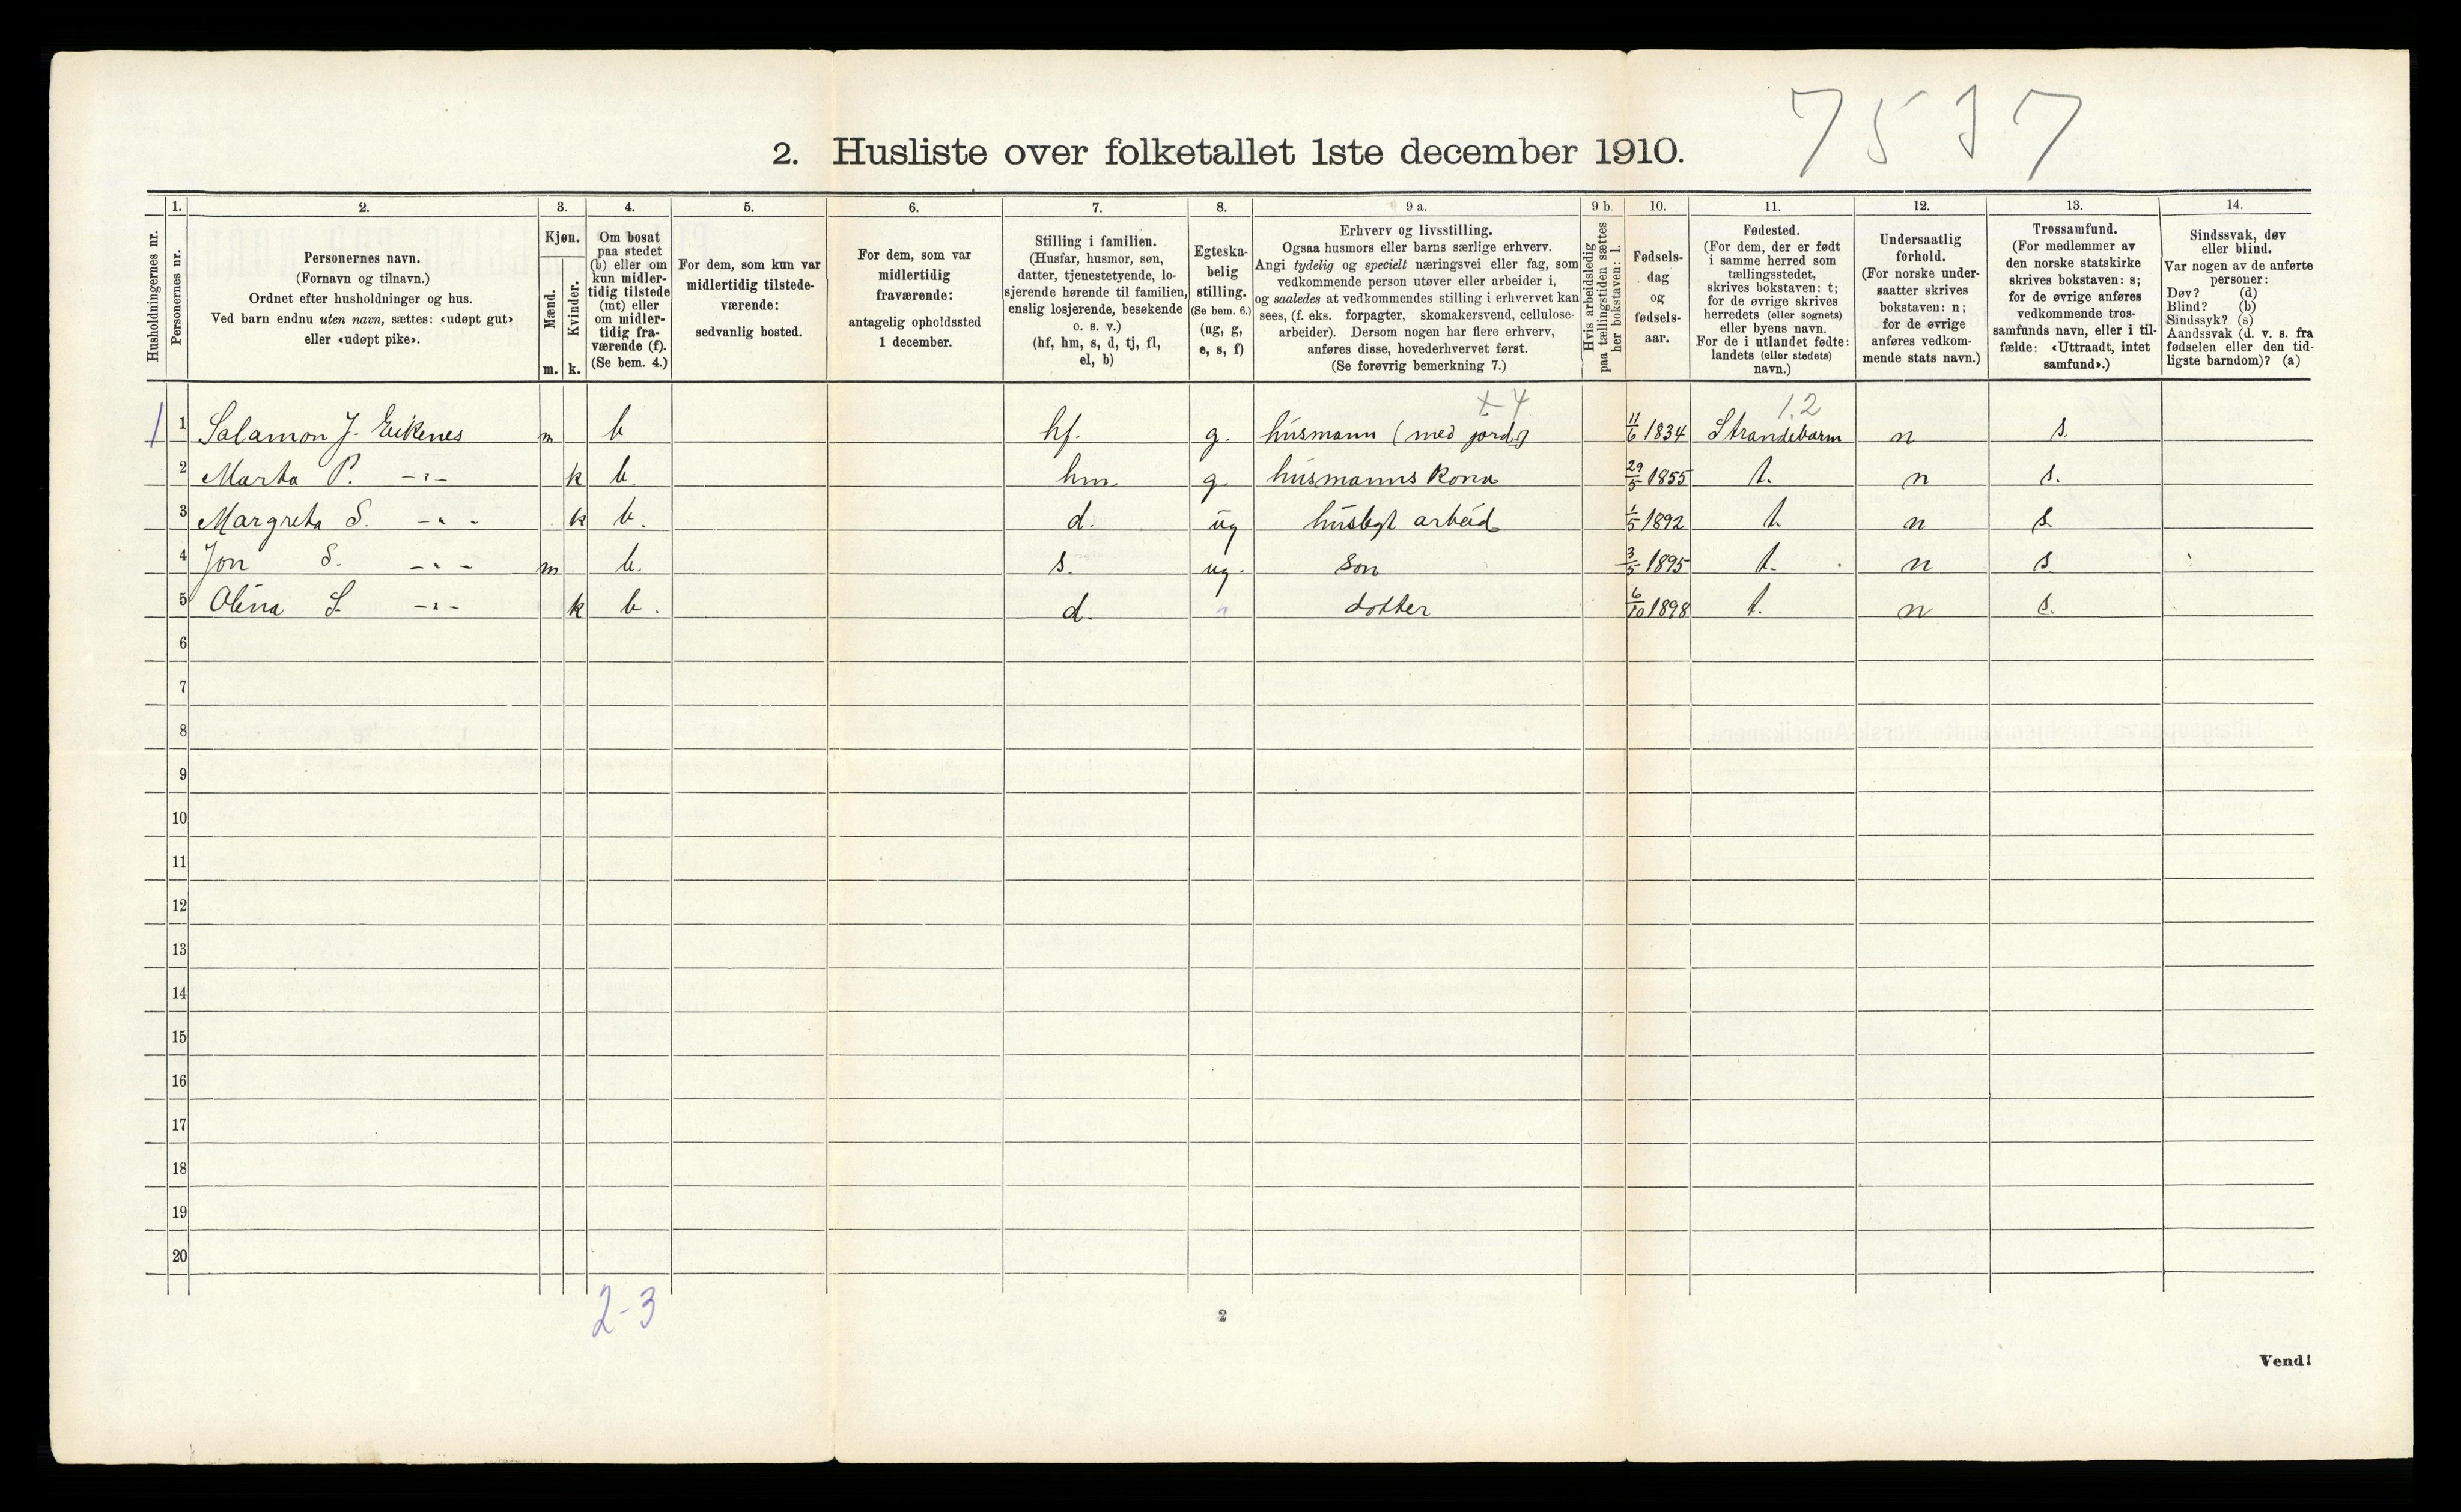 7537
2. Husliste over folketallet 1ste december 1910.
Husholdningernes nr.
1.
Personernes nr.
2.
Personernes navn.
(Fornavn og tilnavn.)
Ordnet efter husholdninger og hus.
Ved barn endnu uten navn, sættes: «udøpt gut»
eller «udøpt pike».
3.
Kjøn.
Mænd.
Kvinder.
m. k.
4.
Om bosat
paa stedet
(b) eller om
kun midler-
tidig tilstede
(mt) eller
om midler-
tidig fra-
værende (f).
(Se bem. 4.)
5.
For dem, som kun var
midlertidig tilstede-
værende:
sedvanlig bosted.
6.
For dem, som var
midlertidig
fraværende:
antagelig opholdssted
1 december.
7.
Stilling i familien.
(Husfar, husmor, søn,
datter, tjenestetyende, lo-
sjerende hørende til familien,
enslig losjerende, besøkende
o. s. v.)
(hf, hm, s, d, tj, fl,
el, b)
8.
Egteska-
belig
stilling.
(Se bem. 6.)
(ug, g,
e, s, f)
9 a.
Erhverv og livsstilling.
Ogsaa husmors eller barns særlige erhverv.
Angi tydelig og specielt næringsvei eller fag, som
vedkommende person utøver eller arbeider i,
og saaledes at vedkommendes stilling i erhvervet kan
sees, (f. eks. forpagter, skomakersvend, cellulose-
arbeider). Dersom nogen har flere erhverv,
anføres disse, hovederhvervet først.
(Se forøvrig bemerkning 7.)
9 b.
Hvis arbeidsledig
paa tællingstiden sættes
her bokstaven: l.
10.
Fødsels-
dag
og
fødsels-
aar.
11.
Fødested.
(For dem, der er født
i samme herred som
tællingsstedet,
skrives bokstaven: t;
for de øvrige skrives
herredets (eller sognets)
eller byens navn.
For de i utlandet fødte:
landets (eller stedets)
navn.)
12.
Undersaatlig
forhold.
(For norske under-
saatter skrives
bokstaven: n;
for de øvrige
anføres vedkom-
mende stats navn.)
13.
Trossamfund.
(For medlemmer av
den norske statskirke
skrives bokstaven: s;
for de øvrige anføres
vedkommende tros-
samfunds navn, eller i til-
fælde: «Uttraadt, intet
samfund».)
14.
Sindssvak, døv
eller blind.
Var nogen av de anførte
personer:
Døv? (d)
Blind? (b)
Sindssyk? (s)
Aandssvak (d. v. s. fra
fødselen eller den tid-
ligste barndom)? (a)
+4 1.2
1 1 Salamon J. Eikenes m b hf. g. husmann (med jord) 11/6 1834 Strandebarm n s.
2 Marta P. -"- k b hm g. husmanns kona 29/5 1855 t. n s.
3 Margreta S. -"- k b. d. ug husligt arbeid 1/5 1892 t. n s.
4 Jon S. -"- m b. s. ug. son 3/5 1895 t. n s.
5 Olina S. -"- k b. d. " dotter 6/10 1898 t. n s.
6
7
8
9
10
11
12
13
14
15
16
17
18
19
20
2-3
2
Vend!